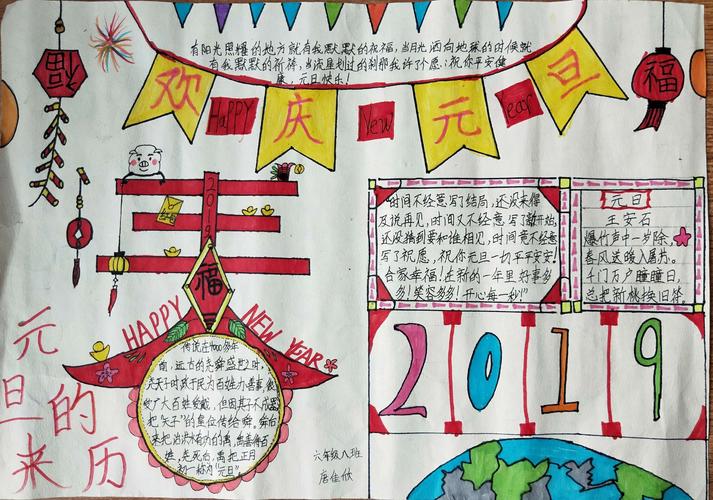 有阳光照耀的地方就有我默默的祝福,当月光洒向地球的时候就
有我默默的祈祷,当流星划过的刹那我许了个愿:祝你平安健
康,元旦快乐!
欢庆元旦
HAPPY New Year
福
福
2019
福
HAPPY NEW YEAR
传说在4000多年
前,远古的尧舜盛世之时,
尧天子时政于民为百姓办善事,很
受广大百姓爱戴,但因其子
把“天子”的皇位传给舜,舜后
来把治洪水有功的禹,禹
舜死后,禹把正月
初一称为“元旦”
元旦的来历
“时间不经意写了结局,还没来得
及说再见,时间又不经意写了新开始,
还没猜到要和谁相见,时间竟不经意
写了祝愿,祝你元旦一切平平安安!
合家幸福!在新的一年里好事多
多!笑容多多!开心每一秒!”
元旦
王安石
爆竹声中一岁除,
春风送暖入屠苏。
千门万户曈曈日,
总把新桃换旧符。
2019
六年级八班
唐佳欣